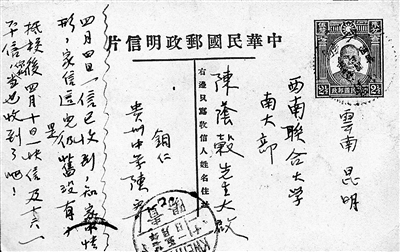 中華民國郵政明信片
2½
2½
雲南 昆明
西南聯合大學
南大部
陳蔭穀先生大啟
右邊只寫收信人姓名住址
銅仁
貴州中學陳
四月四日一信已收到，知家中情
形，家信這兒仍舊沒有
抵校後四月十日一快信及十六一
平信，您當也收到了吧！